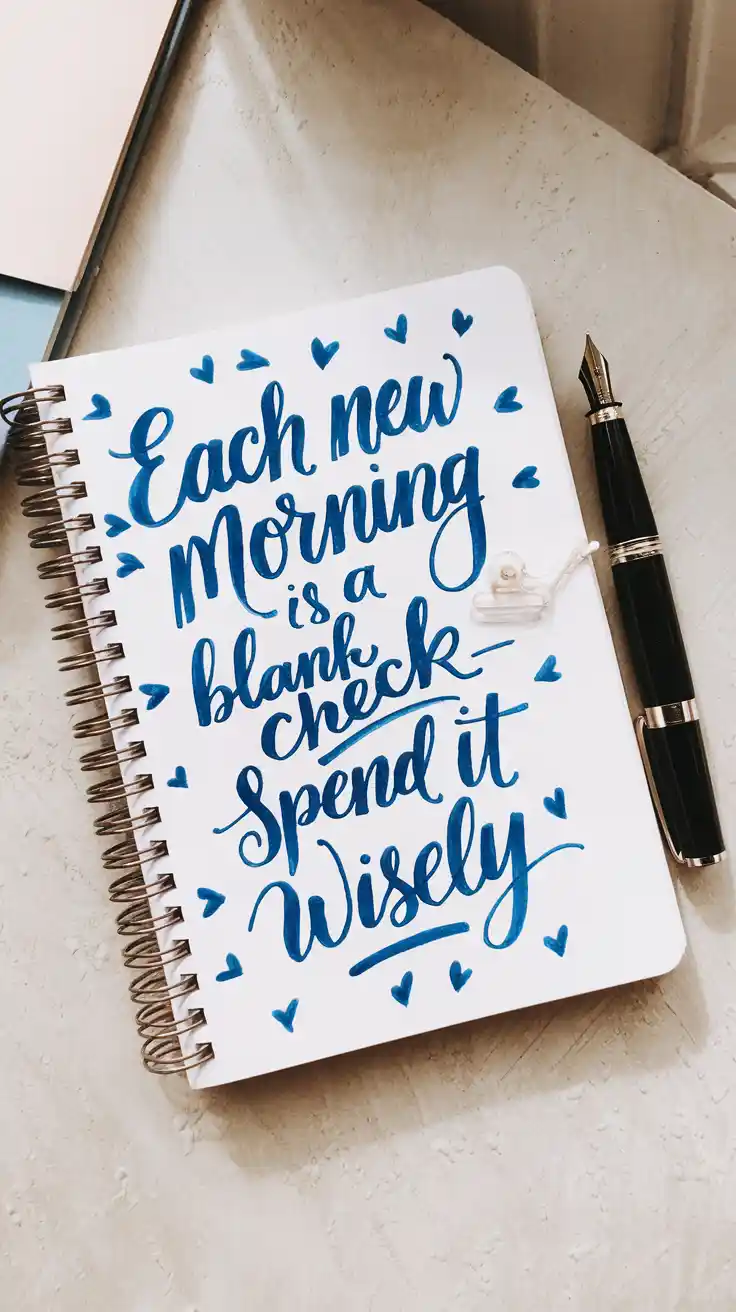 Each new
Morning
is a
blank
check-
Spend it
Wisely